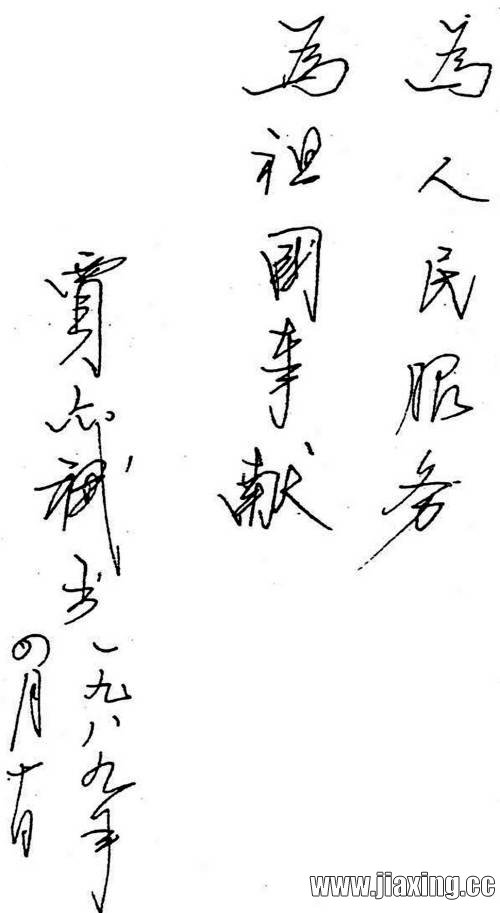 為人民服务
為祖國奉献
賈亦斌书
一九八九年
四月十日
www.jiaxing.cc